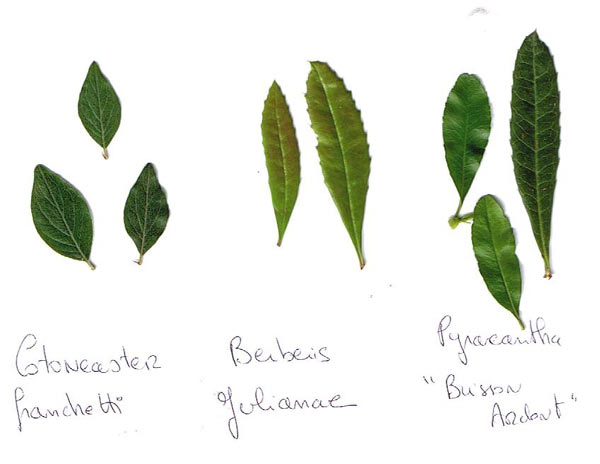 Cotoneaster
franchetti
Berberis
Julianae
Pyracantha
"Buisson
Ardent"